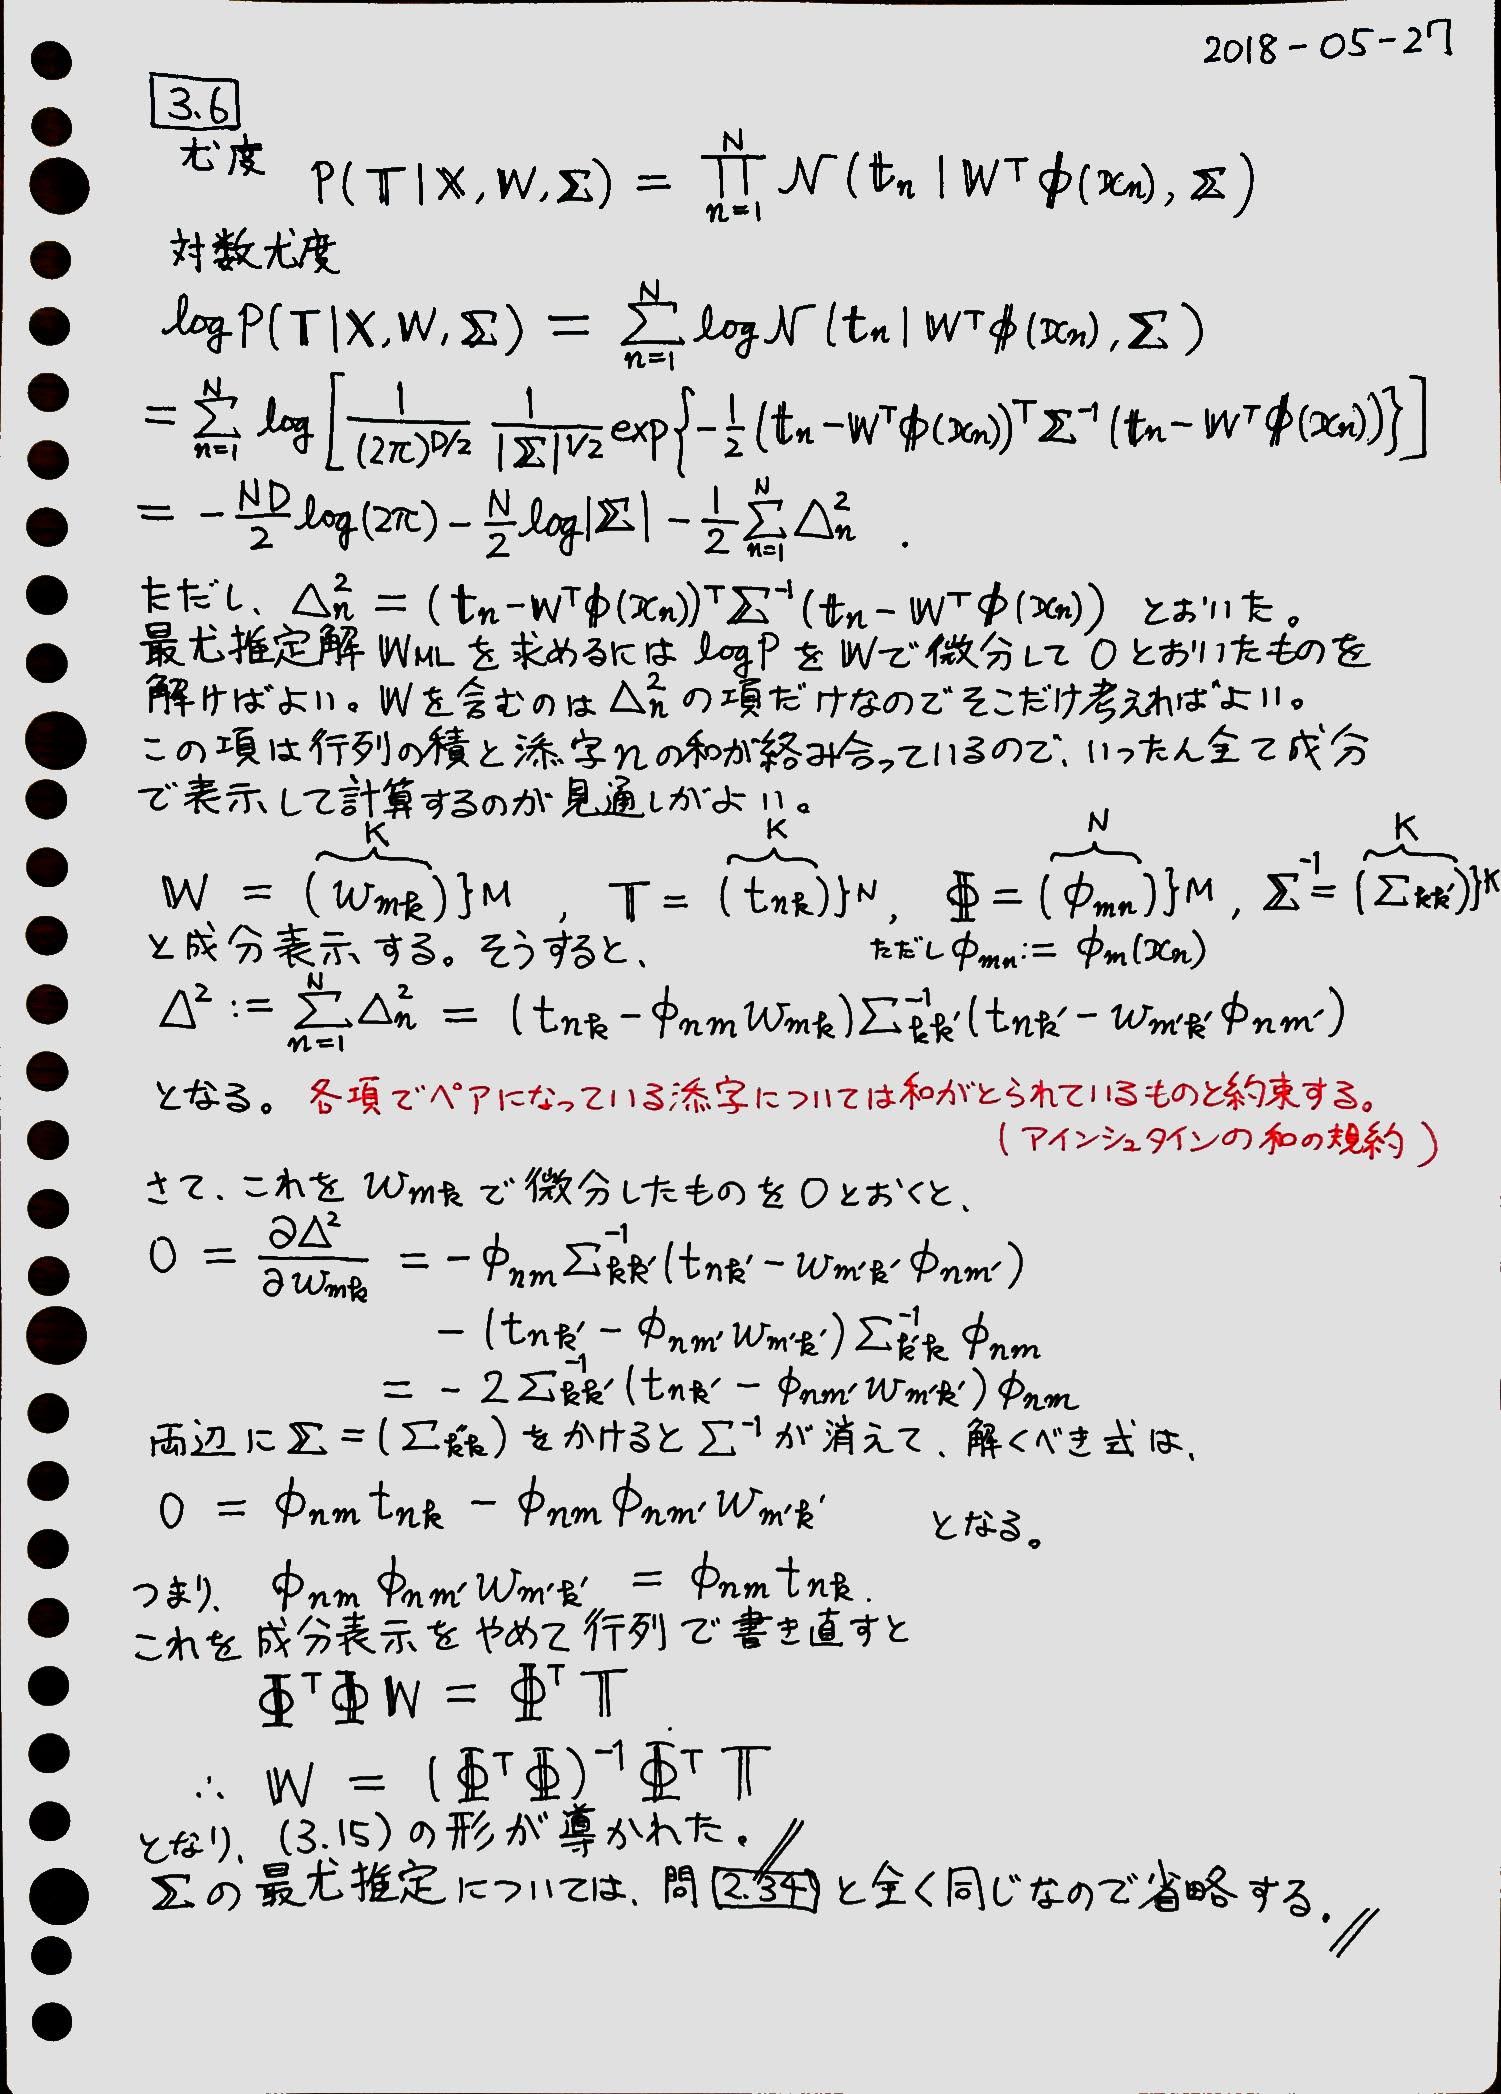 2018-05-27
3.6
尤度 P(T|X, W, Σ) = ∏_{n=1}^{N} N(t_n | W^T φ(x_n), Σ)
対数尤度
log P(T|X, W, Σ) = Σ_{n=1}^{N} log N(t_n | W^T φ(x_n), Σ)
= Σ_{n=1}^{N} log [ 1/(2π)^{D/2} 1/|Σ|^{1/2} exp{ -1/2 (t_n - W^T φ(x_n))^T Σ^{-1} (t_n - W^T φ(x_n)) } ]
= - ND/2 log(2π) - N/2 log|Σ| - 1/2 Σ_{n=1}^{N} Δ_n^2 .
ただし、 Δ_n^2 = (t_n - W^T φ(x_n))^T Σ^{-1} (t_n - W^T φ(x_n)) とおいた。
最尤推定解 W_{ML} を求めるには log P を W で微分して 0 とおいたものを
解けばよい。W を含むのは Δ_n^2 の項だけなのでそこだけ考えればよい。
この項は行列の積と添字 n の和が絡み合っているので、いったん全て成分
で表示して計算するのが見通しがよい。
K K N K
W = (w_{mk})}M , T = (t_{nk})}N , Φ = (φ_{mn})}M , Σ^{-1} = (Σ_{kk'})}K
と成分表示する。そうすると、 ただし φ_{mn} := φ_m(x_n)
Δ^2 := Σ_{n=1}^{N} Δ_n^2 = (t_{nk} - φ_{nm} w_{mk}) Σ_{kk'}^{-1} (t_{nk'} - w_{m'k'} φ_{nm'})
となる。 各項でペアになっている添字については和がとられているものと約束する。
(アインシュタインの和の規約)
さて、これを w_{mk} で微分したものを 0 とおくと、
0 = ∂Δ^2/∂w_{mk} = - φ_{nm} Σ_{kk'}^{-1} (t_{nk'} - w_{m'k'} φ_{nm'})
- (t_{nk'} - φ_{nm'} w_{m'k'}) Σ_{k'k}^{-1} φ_{nm}
= - 2 Σ_{kk'}^{-1} (t_{nk'} - φ_{nm'} w_{m'k'}) φ_{nm}
両辺に Σ = (Σ_{k''k}) をかけると Σ^{-1} が消えて、解くべき式は、
0 = φ_{nm} t_{nk} - φ_{nm} φ_{nm'} w_{m'k'} となる。
つまり、 φ_{nm} φ_{nm'} w_{m'k'} = φ_{nm} t_{nk} .
これを成分表示をやめて行列で書き直すと
Φ^T Φ W = Φ^T T
∴ W = (Φ^T Φ)^{-1} Φ^T T
となり、(3.15) の形が導かれた。//
Σの最尤推定については、問 2.34 と全く同じなので省略する. //